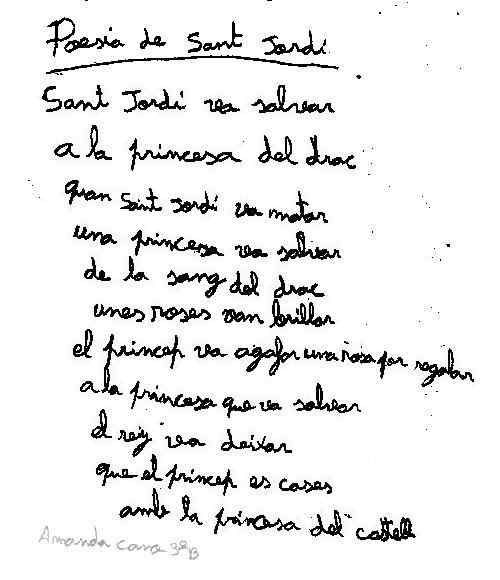 Poesia de Sant Jordi
Sant Jordi va salvar
a la princesa del drac
quan Sant Jordi va matar
una princesa va salvar
de la sang del drac
unes roses van brillar
el princep va agafar una rosa per regalar
a la princesa que va salvar
el rey va deixar
que el princep es cases
amb la princesa del castell
Amanda 3ºB